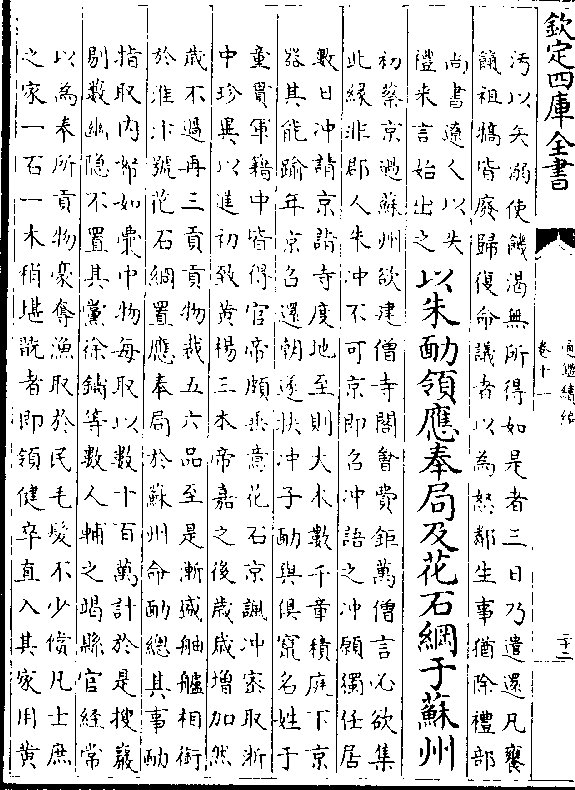 欽定四庫全書
通鑑續編
卷十一
二十二
汚以矢溺使饑渴無所得如是者三日乃遣還凡饔
餼祖犒皆廢歸復命議者以為怒鄰生事猶除禮部
尚書遼人以失
禮來言始出之
以朱勔領應奉局及花石綱于蘇州
初蔡京過蘇州欲建僧寺閣會費鉅萬僧言必欲集
此緣非郡人朱冲不可京即召冲語之冲願獨任居
數日冲請京詣寺度地至則大木數千章積庭下京
器其能踰年京召還朝遂挟冲子勔與俱竄名姓于
童貫軍籍中皆得官帝頗垂意花石京諷冲密取浙
中珍異以進初致黄楊三本帝嘉之後歲歲增加然
歲不過再三貢貢物裁五六品至是漸盛舳艫相銜
於淮汴號花石綱置應奉局於蘇州命勔總其事勔
指取内帑如囊中物每取以數十百萬計於是搜巖
剔藪幽隱不置其黨徐鑄等數人輔之竭縣官經常
以為奉所貢物豪奪漁取於民毛髪不少償凡士庶
之家一石一木稍堪翫者即領健卒直入其家用黄